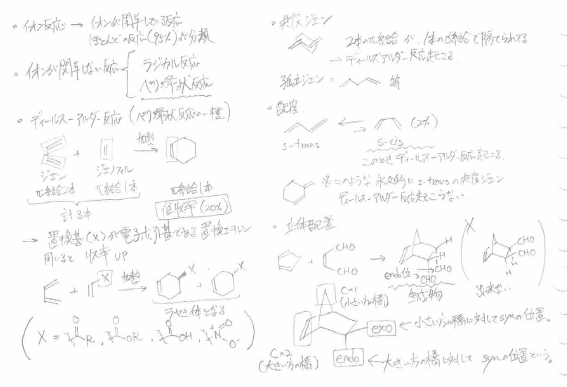 • イオン反応 → イオンが関与している反応
ほとんどの反応(95%)が分類
• イオンが関与しない反応
ラジカル反応
ペリ環状反応
• ディールス-アルダー反応 (ペリ環状反応の一種)
+
加熱
ジエン
ジエノフィル
π結合2本
π結合1本
π結合1本
計3本
低収率(20%)
→ 置換基(X)が電子求引基である置換エチレン
用いると 収率UP
+
X
加熱
X
+
X
ラセミ体となる
(X = R, OR, OH, N O O⁻)
• 共役ジエン
2本のπ結合が、1本のσ結合で隔てられてる
→ ディールスアルダー反応起こる。
孤立ジエン = 等
• 配座
(2%)
s-trans
s-cis
このとき ディールス-アルダー反応起こる。
※このような 永久的に s-transの共役ジエン
ディールス-アルダー反応起こらない。
• 立体配置
+
CHO
CHO
→
H
H
CHO
CHO
endo位
生成物
X
CHO
CHO
H
H
出来ない
Cn1
(小さい方の橋)
exo ← 小さい方の橋に対してsynの位置。
Cn2
(大きい方の橋)
endo ← 大きい方の橋に対して synの位置という。